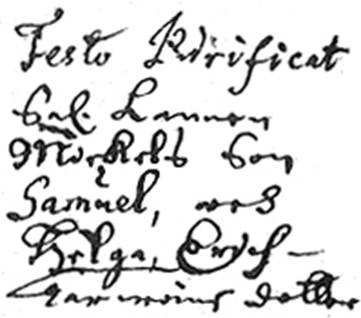 Festo Purificat
Sal. Lannon
Mörkels Son
Samuel, och
Helga,
dotter